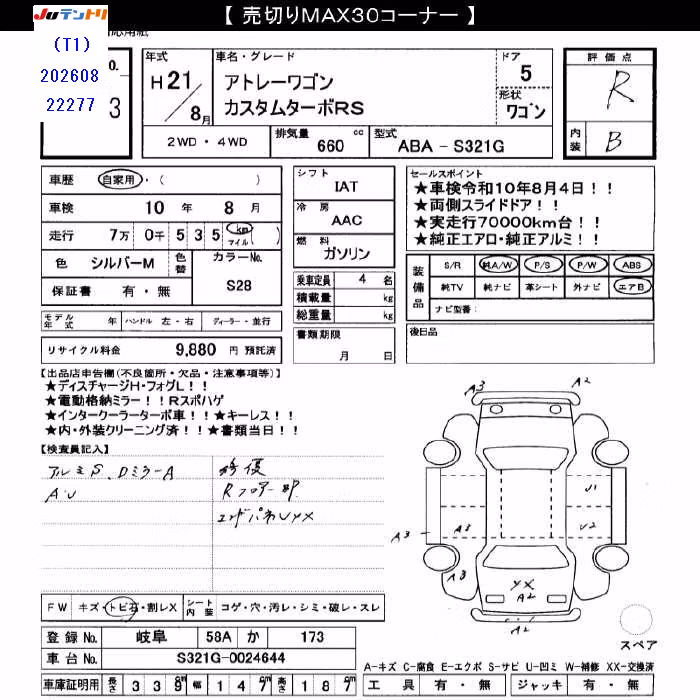 【 売切りMAX30コーナー 】
JUテントリ
(T1)
202608
22277
3
年式
H21/8月
車名・グレード
アトレーワゴン
カスタムターボRS
ドア
5
形状
ワゴン
評価点
R
内装
B
2WD・4WD
排気量
660 cc
型式
ABA - S321G
車歴 自家用・( )
車検 10 年 8 月
走行 7万 0千 5 3 5 km マイル( )
色 シルバーM 色替 カラーNo. S28
保証書 有・無
モデル年式 年 ハンドル 左・右 ディーラー・並行
リサイクル料金 9,880 円 預託済
シフト
IAT
冷房
AAC
燃料
ガソリン
乗車定員 4 名
積載量 kg
総重量 kg
書類期限
月 日
セールスポイント
★車検令和10年8月4日!!
★両側スライドドア!!
★実走行70000km台!!
★純正エアロ・純正アルミ!!
装備品
S/R 純A/W P/S P/W ABS
純TV 純ナビ 革シート 外ナビ エアB
ナビ型番:
後日品
【出品店申告欄(不良箇所・欠品・注意事項等)】
★ディスチャージH・フォグL!!
★電動格納ミラー!!Rスポハゲ
★インタークーラーターボ車!!★キーレス!!
★内・外装クリーニング済!!★書類当日!!
【検査員記入】
アルミS、Dミラー A
A・U
修復
Rフロアー部
エンドパネUYX
A3
A2
U1
A3
A3
U2
A3
YX
A2
A2
スペア
FW キズ・トビ石・割レX
シート内装 コゲ・穴・汚レ・シミ・破レ・スレ
登録No. 岐阜 58A か 173
車台No. S321G-0024644
車庫証明用 長さ 3 3 9 cm 幅 1 4 7 cm 高さ 1 8 7 cm
A-キズ C-腐食 E-エクボ S-サビ U-凹ミ W-補修 XX-交換済
工具 有・無 ジャッキ 有・無